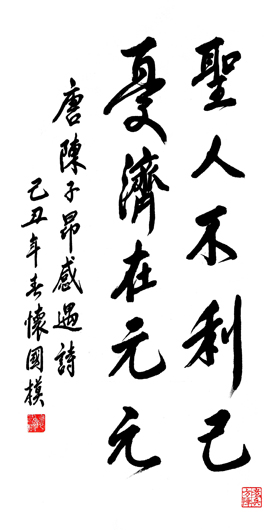 聖人不利己
憂濟在元元
唐陳子昂感遇詩
己丑年春懷國模